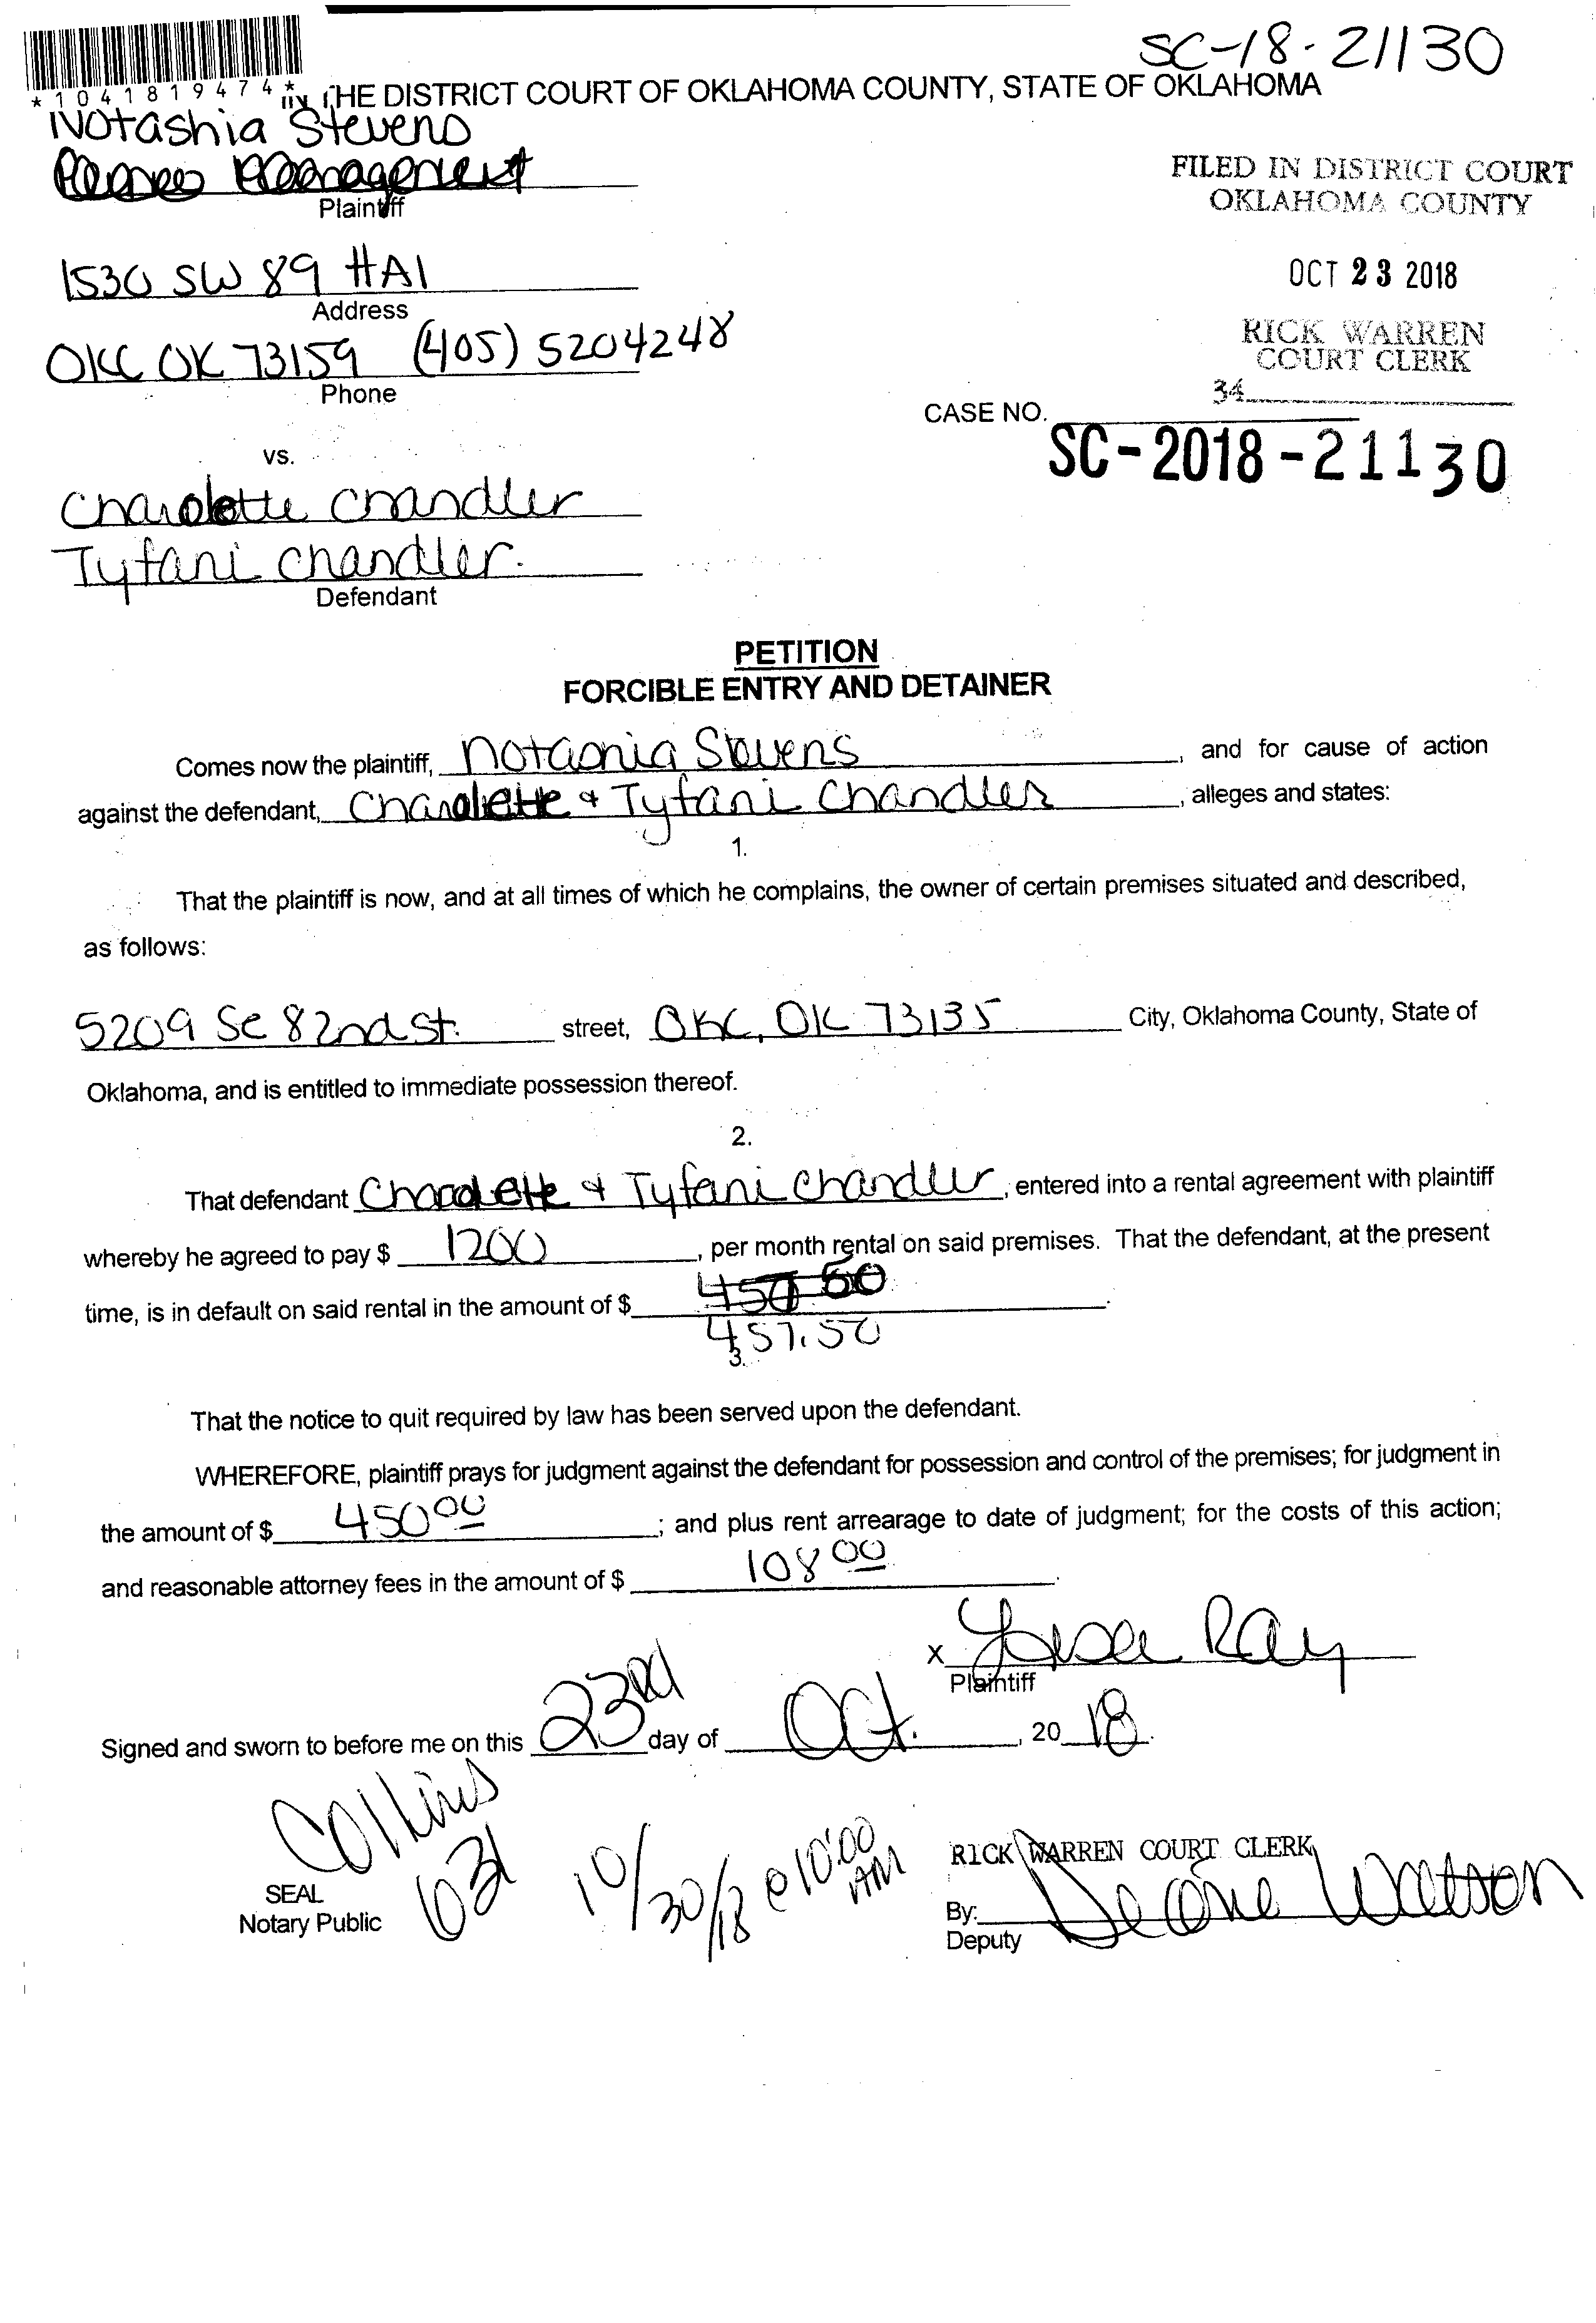 SC-18-21130
*1041819474*
THE DISTRICT COURT OF OKLAHOMA COUNTY, STATE OF OKLAHOMA
Notashia Stevens
Management
Plaintiff
FILED IN DISTRICT COURT
OKLAHOMA COUNTY
1530 SW 89 #A1
Address
OCT 23 2018
OKC OK 73159 (405) 5204248
Phone
RICK WARREN
COURT CLERK
34
CASE NO.
SC-2018-21130
vs.
Charolette Chandler
Tyfani Chandler.
Defendant
PETITION
FORCIBLE ENTRY AND DETAINER
Comes now the plaintiff, Notashia Stevens, and for cause of action
against the defendant, Charolette & Tyfani Chandler, alleges and states:
1.
That the plaintiff is now, and at all times of which he complains, the owner of certain premises situated and described,
as follows:
5209 SE 82nd St. street, OKC, OK 73135 City, Oklahoma County, State of
Oklahoma, and is entitled to immediate possession thereof.
2.
That defendant Charolette & Tyfani Chandler, entered into a rental agreement with plaintiff
whereby he agreed to pay $ 1200, per month rental on said premises. That the defendant, at the present
time, is in default on said rental in the amount of $ .
457.50
3.
That the notice to quit required by law has been served upon the defendant.
WHEREFORE, plaintiff prays for judgment against the defendant for possession and control of the premises; for judgment in
the amount of $ 450 00; and plus rent arrearage to date of judgment; for the costs of this action;
and reasonable attorney fees in the amount of $ 108 00.
x Ray
Plaintiff
Signed and sworn to before me on this 23rd day of Oct., 20 18.
Collins
031
10/30/18 @ 10:00 AM
SEAL
Notary Public
RICK WARREN COURT CLERK
By: Watson
Deputy